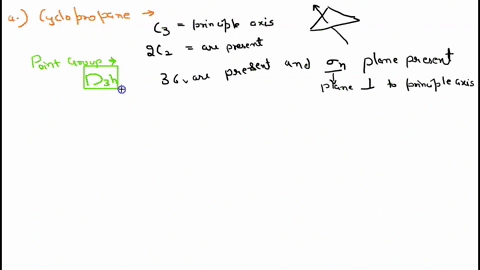 a.) Cyclopropane → C₃ = principle axis
2C₂ = are present
Point Group → D₃h
3σᵥ are present and σₙ plane present
plane ⊥ to principle axis